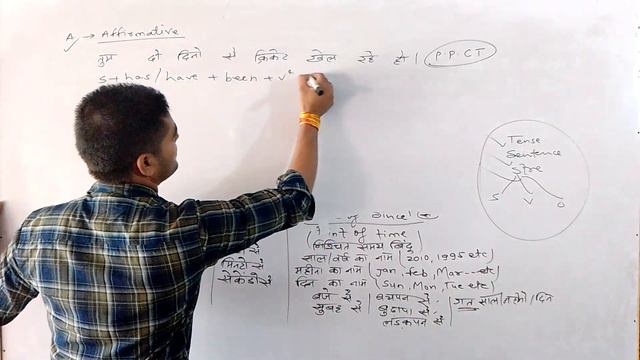 A → Affirmative
तुम दो दिनो से क्रिकेट खेल रहे हो। P.P.C.T
S + has/have + been + v⁴
Tense
Sentence
Stre
S V O
since
int of time
निश्चित समय बिंदु
साल/वर्ष का नाम (2010, 1995 etc)
महीना का नाम (Jan, Feb, Mar---etc)
दिन का नाम (Sun, Mon, Tue etc)
मिनटो से
सेकेंडो से
बजे से बचपन से गत साल/महीने/दिन
सुबह से बुढ़ापा से
लडकपन से